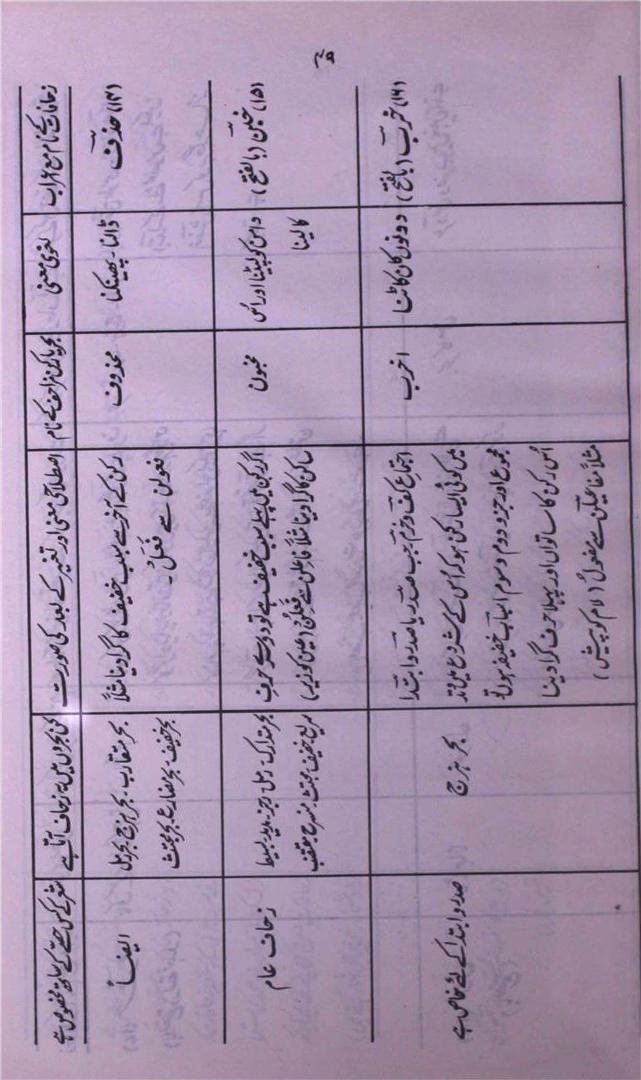 ۳۹
زحافات کے نام مع اعراب
لغوی معنی
بحر یا رکن مزاحف کے نام
اصطلاحی معنی اور تغیر کے بعد کی صورت
کن بحروں میں یہ زحاف آتا ہے
شعر کے کس حصّے کے ساتھ مخصوص ہے
(۱۴) حذف
ڈالنا۔ پھینکنا
محذوف
رکن کے آخر سے سبب خفیف کا گرا دینا مثلاً
فعولن سے فَعَلْ
بحر متقارب۔ بحر ہزج۔ بحر رمل
بحر خفیف۔ بحر مضارع۔ بحر مجتث
ایضاً
(۱۵) خبن (بالفتح)
دامن کو لپیٹنا اور اُس
کا لینا
مخبون
اگر رکن میں پہلے سبب خفیف ہے تو دوسرے حرف
ساکن کا گرا دینا مثلاً فاعلن سے فَعِلُن (عین کو زیر)
بحر متدارک۔ رمل۔ رجز۔ مدید۔ بسیط
سریع۔ خفیف۔ مجتث۔ منسرح۔ مقتضب
زحاف عام
(۱۶) خرب (بالفتح)
دونوں کان کاٹنا
اخرب
اجتماع کف و خرم جب صدر یا صدر و ابتدا
میں کوئی ایسا رکن ہو کہ اُس کے شروع میں وتد
مجموع اور جزو دوم و سوم اسباب خفیف ہوں تو
اُس رکن کا ساتواں اور پہلا حرف گرا دینا
مثلاً مفاعیلن سے مفعولُ (لام کو پیش)
بحر ہزج
صدر و ابتدا کے لئے خاص ہے